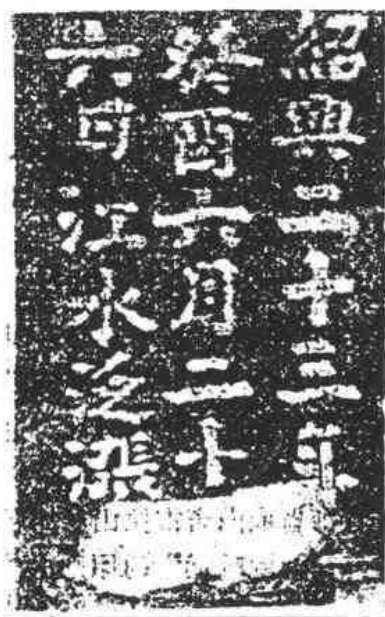 紹興二十三年
癸酉六月二十
六日江水泛漲